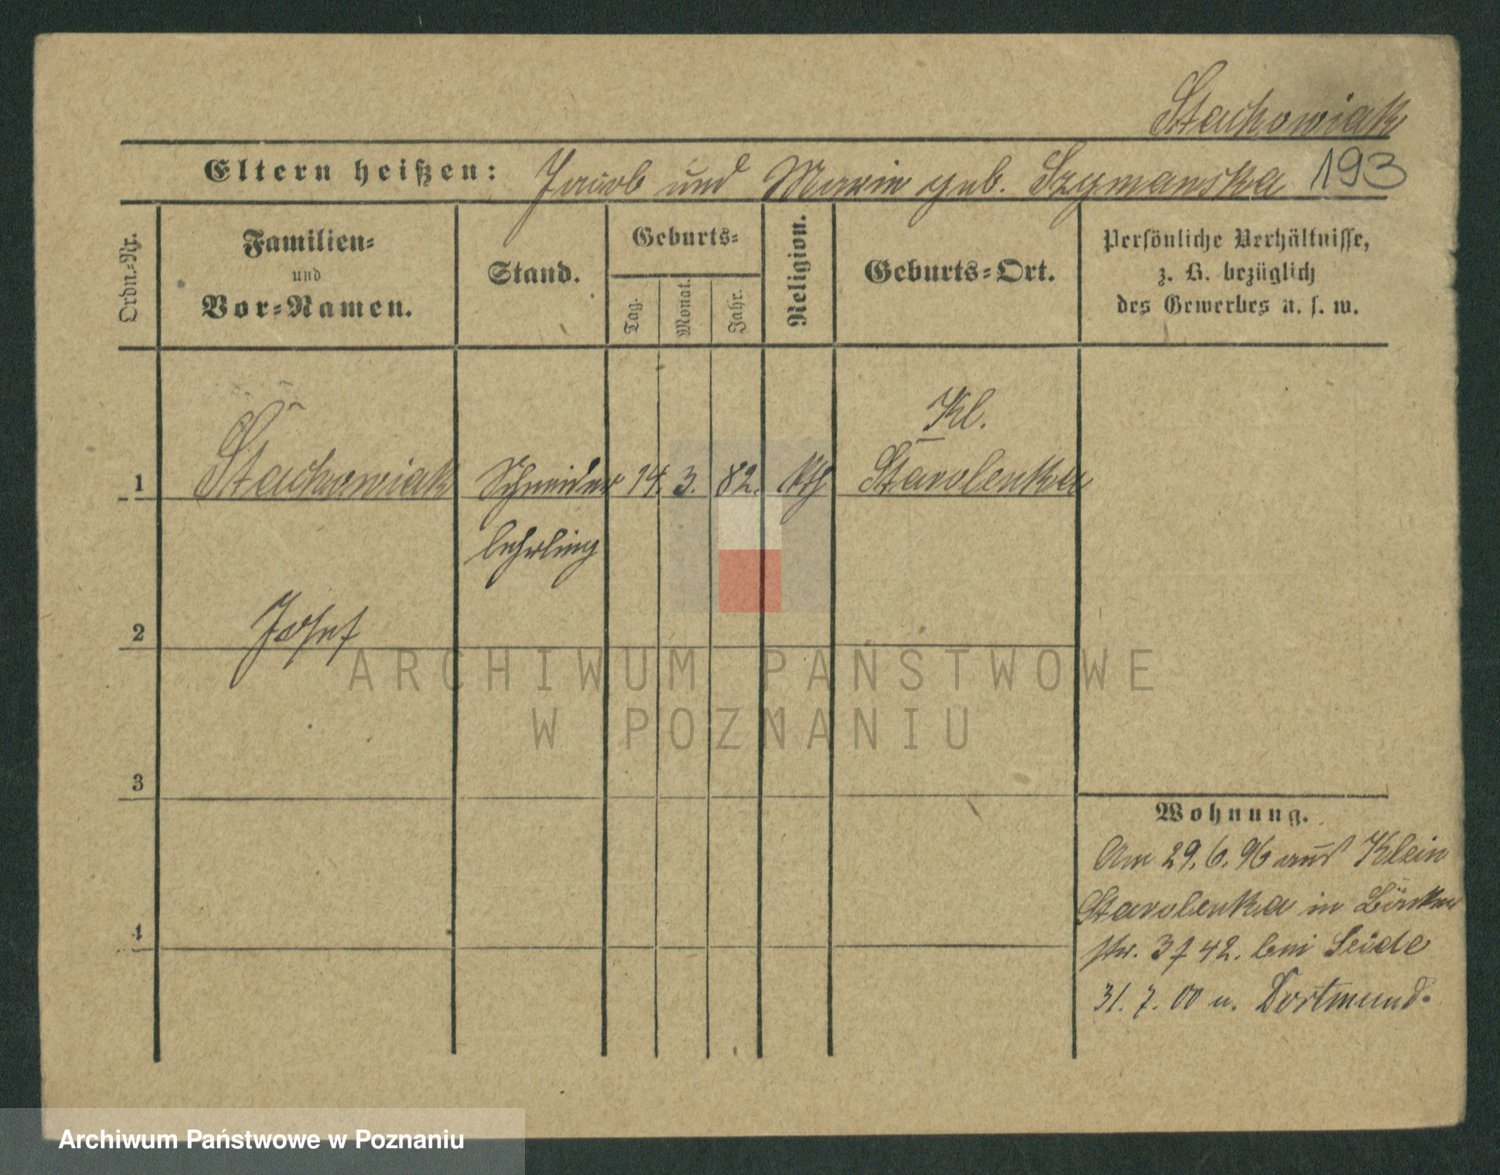 Stachowiak
Eltern heißen: Jacob und Marie geb. Szymanska 193
Ordn.-Nr.
Familien-
und
Vor-Namen.
Stand.
Geburts-
Tag.
Monat.
Jahr.
Religion.
Geburts-Ort.
Persönliche Verhältnisse,
z. B. bezüglich
des Gewerbes u. s. w.
Kl.
1 Stachowiak Schneider 14. 3. 82. kth Starolenka
lehrling
2 Josef
3
Wohnung.
Am 29.6.96 aus Klein
Starolenka in
4
str. 3 42. bei Seide
31. 7. 00 n. Dortmund.
ARCHIWUM PAŃSTWOWE
W POZNANIU
Archiwum Państwowe w Poznaniu